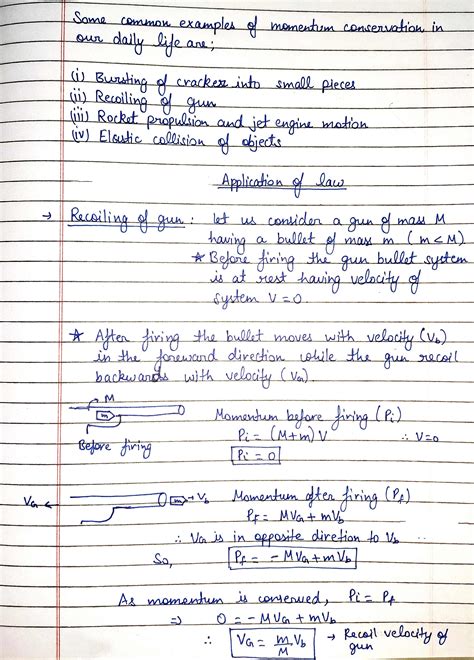 Some common examples of momentum conservation in
our daily life are;
(i) Bursting of cracker into small pieces
(ii) Recoiling of gun
(iii) Rocket propulsion and jet engine motion
(iv) Elastic collision of objects
Application of law
→ Recoiling of gun : let us consider a gun of mass M
having a bullet of mass m (m < M)
* Before firing the gun bullet system
is at rest having velocity of
system V = 0.
* After firing the bullet moves with velocity (Vb)
in the foreward direction while the gun recoil
backwards with velocity (VG).
M
m
Before firing
Momentum before firing (Pi)
Pi = (M+m) V ∴ V=0
Pi = 0
VG < m → Vb
Momentum after firing (Pf)
Pf = MVG + mVb
∴ VG is in opposite diretion to Vb
So, Pf = - MVG + mVb
As momentum is conserved, Pi = Pf
⇒ 0 = - MVG + mVb
∴ VG = m/M Vb → Recoil velocity of
gun